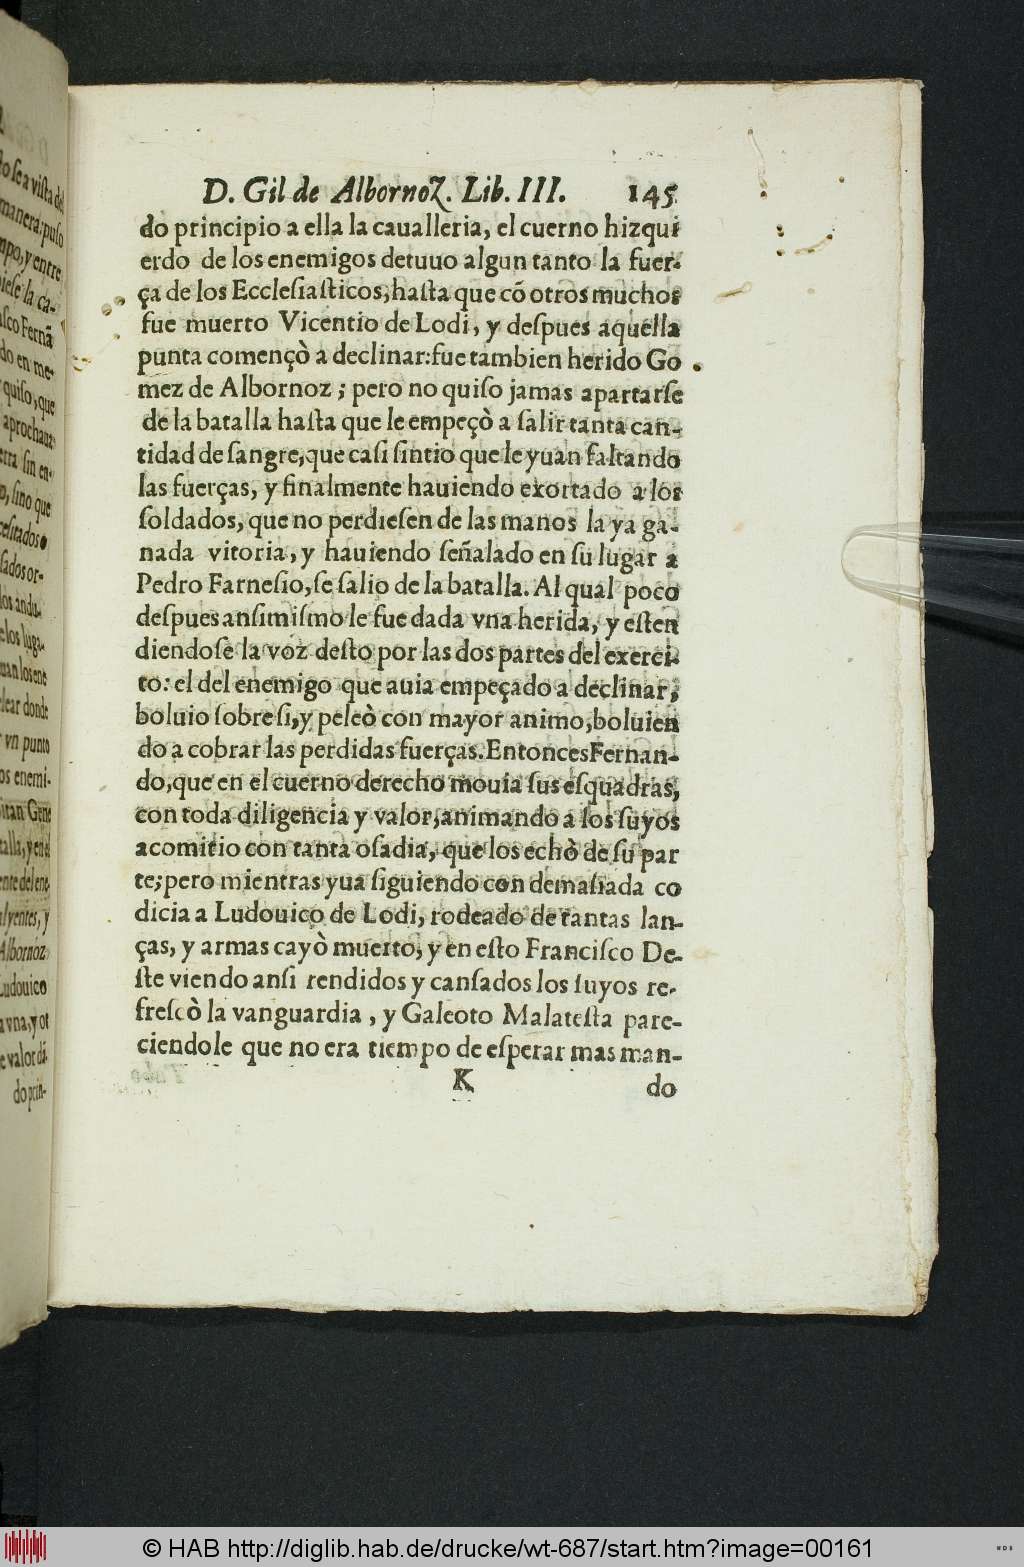 D. Gil de Albornoz. Lib. III. 145
do principio a ella la caualleria, el cuerno hizqui
erdo de los enemigos detuuo algun tanto la fuer-
ça de los Ecclesiaſticos, haſta que cõ otros muchos
fue muerto Vicentio de Lodi, y deſpues aquella
punta començò a declinar: fue tambien herido Go
mez de Albornoz; pero no quiſo jamas apartarſe
de la batalla haſta que le empeçò a ſalir tanta can-
tidad de ſangre, que caſi ſintio que le yuan faltando
las fuerças, y finalmente hauiendo exortado a los
ſoldados, que no perdieſen de las manos la ya ga-
nada vitoria, y hauiendo ſeñalado en ſu lugar a
Pedro Farneſio, ſe ſalio de la batalla. Al qual poco
deſpues anſimiſmo le fue dada vna herida, y eſten
diendoſe la voz deſto por las dos partes del exerci-
to: el del enemigo que auia empeçado a declinar,
boluio ſobre ſi, y peleò con mayor animo, boluien
do a cobrar las perdidas fuerças. Entonces Fernan-
do, que en el cuerno derecho mouia ſus eſquadras,
con toda diligencia y valor, animando a los ſuyos
acomitio con tanta oſadia, que los echò de ſu par
te; pero mientras yua ſiguiendo con demaſiada co
dicia a Ludouico de Lodi, rodeado de tantas lan-
ças, y armas cayò muerto, y en eſto Franciſco De-
ſte viendo anſi rendidos y canſados los ſuyos re-
freſcò la vanguardia, y Galeoto Malateſta pare-
ciendole que no era tiempo de eſperar mas man-
K do
to ſe a viſta del
manera: puſo
mpo, y entre
ieſe la ca-
aſco Fernã
do en me-
quiſo, que
aprochaua
erra ſin en-
o, ſino que
ceſitados
ſados or-
los andu-
e los luga-
man los ene
lear donde
vn punto
os enemi-
itan Gene
talla, y en el
ente del ene-
alyentes, y
Albornoz
Ludouico
a vna, y ot
e valor dã-
do prin-
© HAB http://diglib.hab.de/drucke/wt-687/start.htm?image=00161